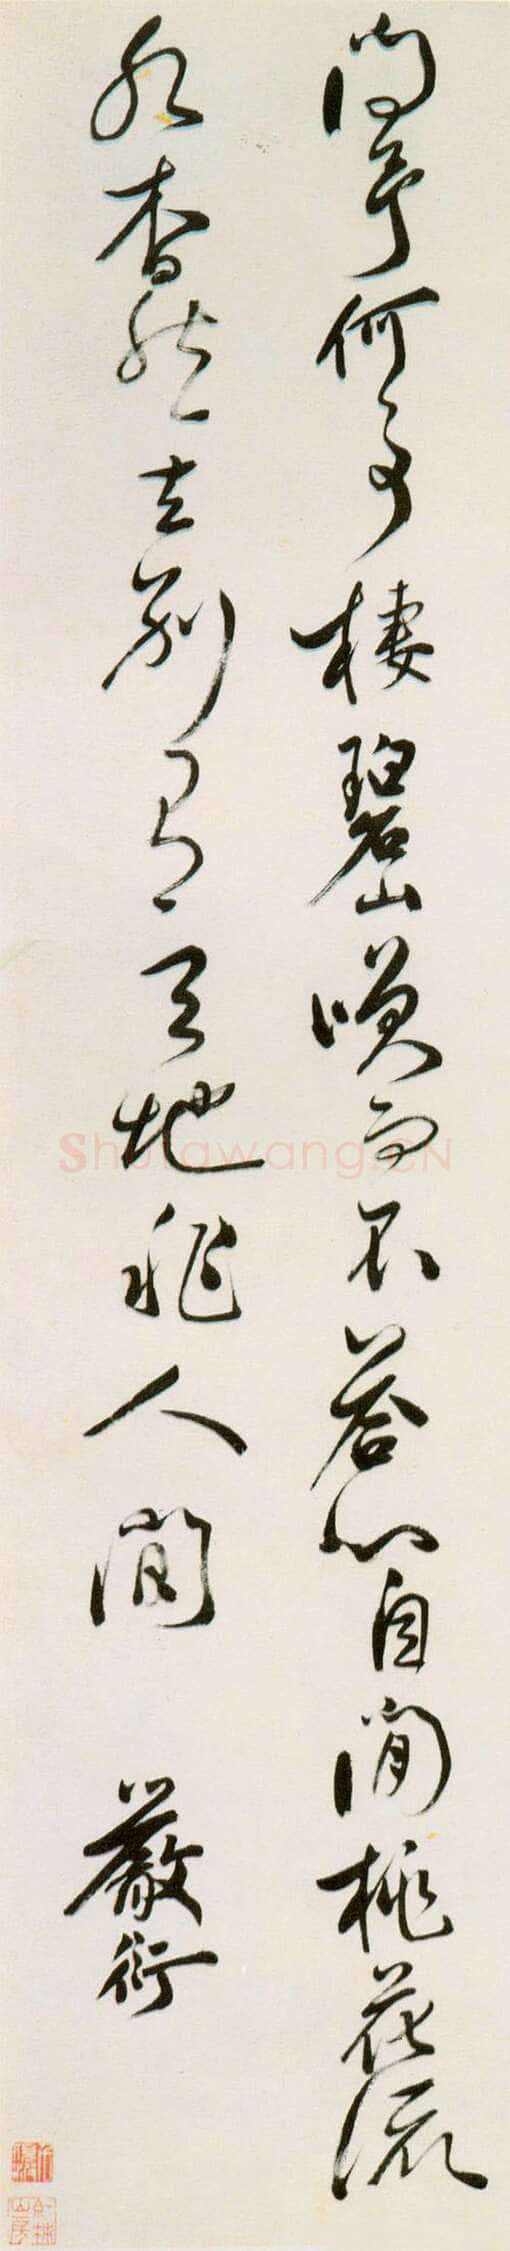 問予何事棲碧山笑而不答心自閒桃花流
水杳然去別有天地非人間
嚴衍
Shufawang.CN